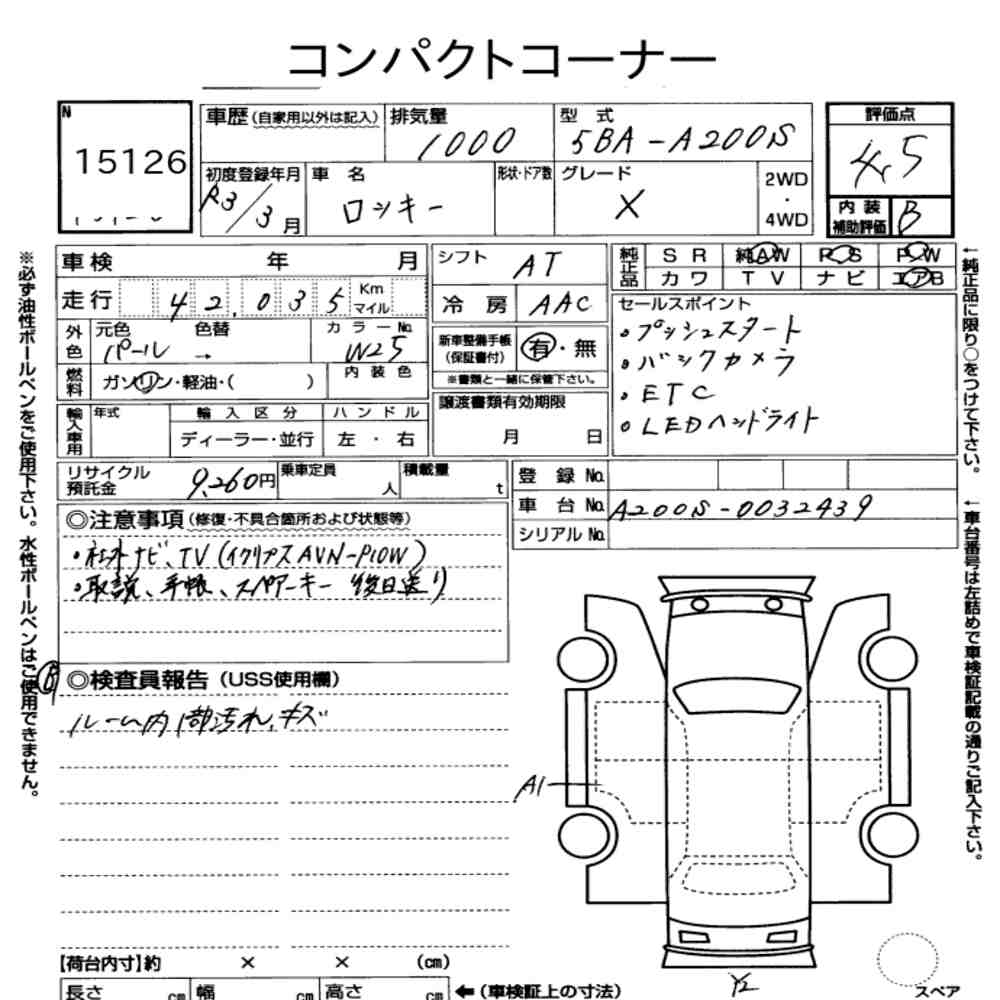 コンパクトコーナー
N
15126
車歴 (自家用以外は記入)
排気量
1000
型式
5BA-A200S
評価点
4.5
初度登録年月
R3/3月
車名
ロッキー
形状・ドア数
グレード
X
2WD
・
4WD
内装
補助評価
B
車検 年 月
シフト
AT
純正品
SR 純AW P.S P.W
カワ TV ナビ エアB
走行 42,035 Km
マイル
冷房
AAC
セールスポイント
・プッシュスタート
・バックカメラ
・ETC
・LEDヘッドライト
外色
元色 色替 カラーNo.
パール → W25
新車整備手帳
(保証書付)
有・無
※書類と一緒に保管下さい。
燃料
ガソリン・軽油・( )
内装色
譲渡書類有効期限
月 日
輸入車用
年式
輸入区分
ハンドル
ディーラー・並行
左・右
リサイクル
預託金
9,260円
乗車定員
人
積載量
t
登録No.
車台No.
A200S-0032439
シリアルNo.
◎注意事項 (修復・不具合箇所および状態等)
・社外ナビ、TV (イクリプスAVN-P10W)
・取説、手帳、スペアーキー 後日送り
B
◎検査員報告 (USS使用欄)
ルーム内1部汚れ、キズ
A1
Y2
スペア
【荷台内寸】約 × × (cm)
長さ cm 幅 cm 高さ cm
← (車検証上の寸法)
※必ず油性ボールペンをご使用下さい。水性ボールペンはご使用できません。
←純正品に限り○をつけて下さい。
←車台番号は左詰めで車検証記載の通りご記入下さい。